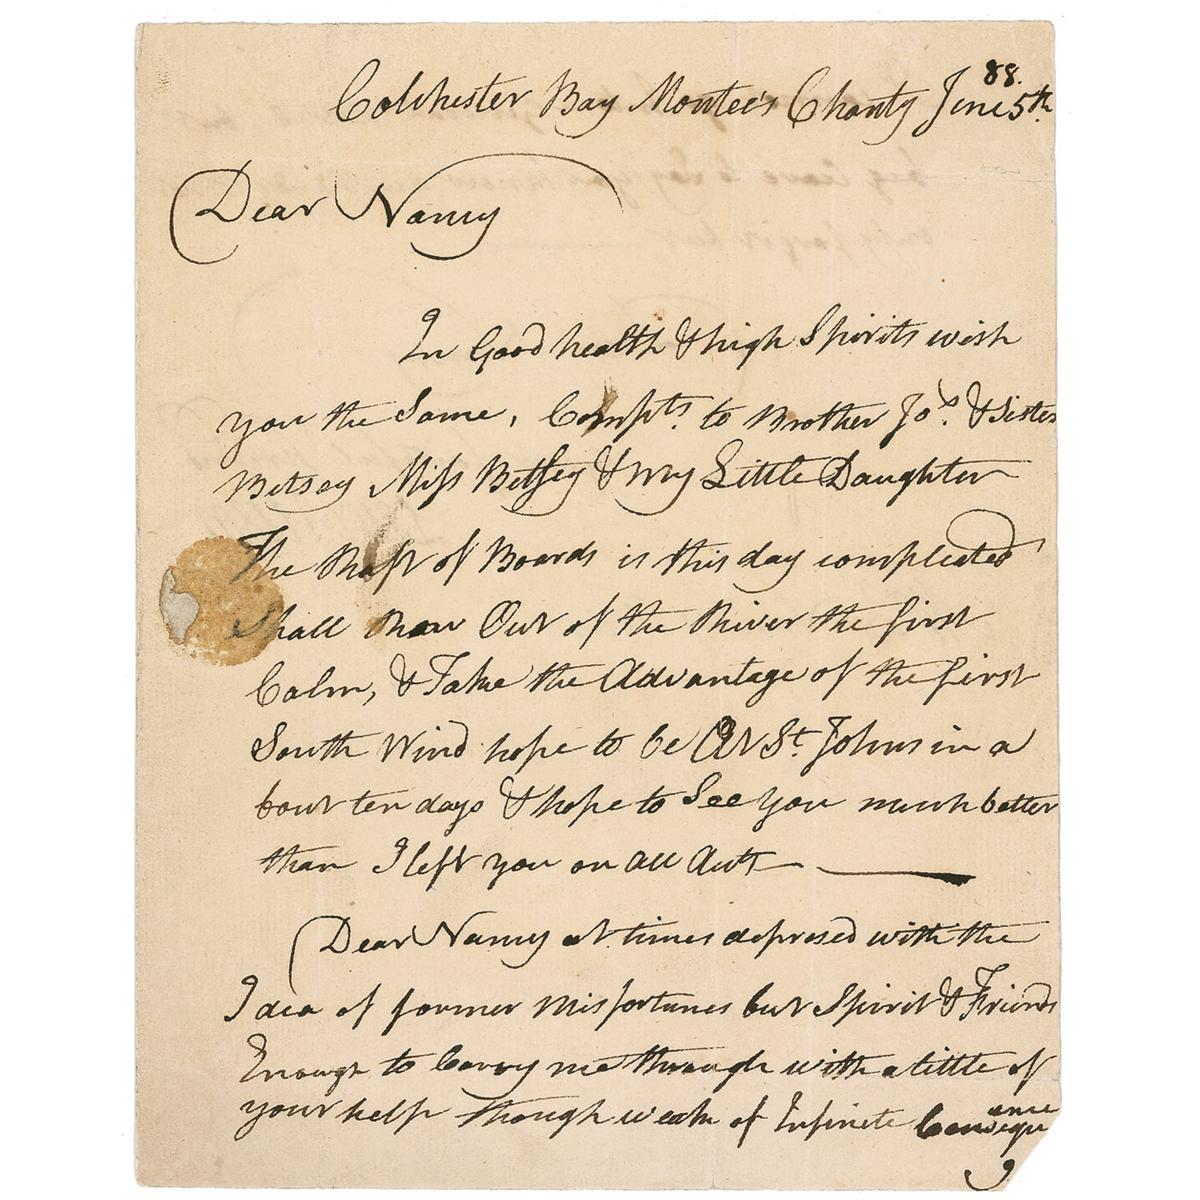 88.
Colchester Bay Montee's Chanty June 5th.
Dear Nancy
In Good health & high Spirits wish
you the Same, Compts. to Brother Jos. & Sister
Betsey Miss Betsey & my Little Daughter
The Raft of Boards is this day compleated
Shall Row Out of the River the first
Calm, & Take the Advantage of the first
South Wind hope to be At St. Johns in a
bout ten days & hope to See you much better
than I left you on all Acts
Dear Nancy at times depresed with the
Idea of former misfortunes but Spirit & Friends
Enough to Carry me through with a little of
your help though weak of Infinite Consequ
ance